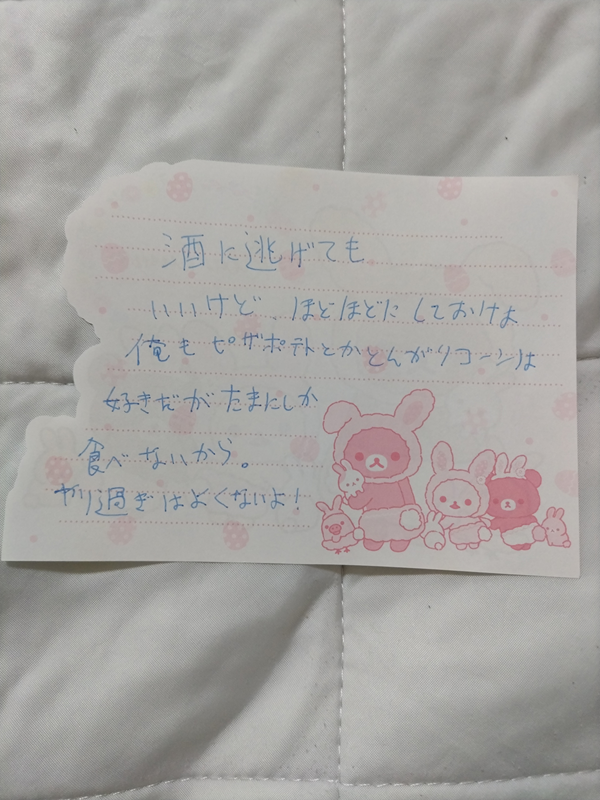 酒に逃げても
いいけど、ほどほどにしておけよ
俺もピザポテトとかとんがりコーンは
好きだがたまにしか
食べないから。
やり過ぎはよくないよ!